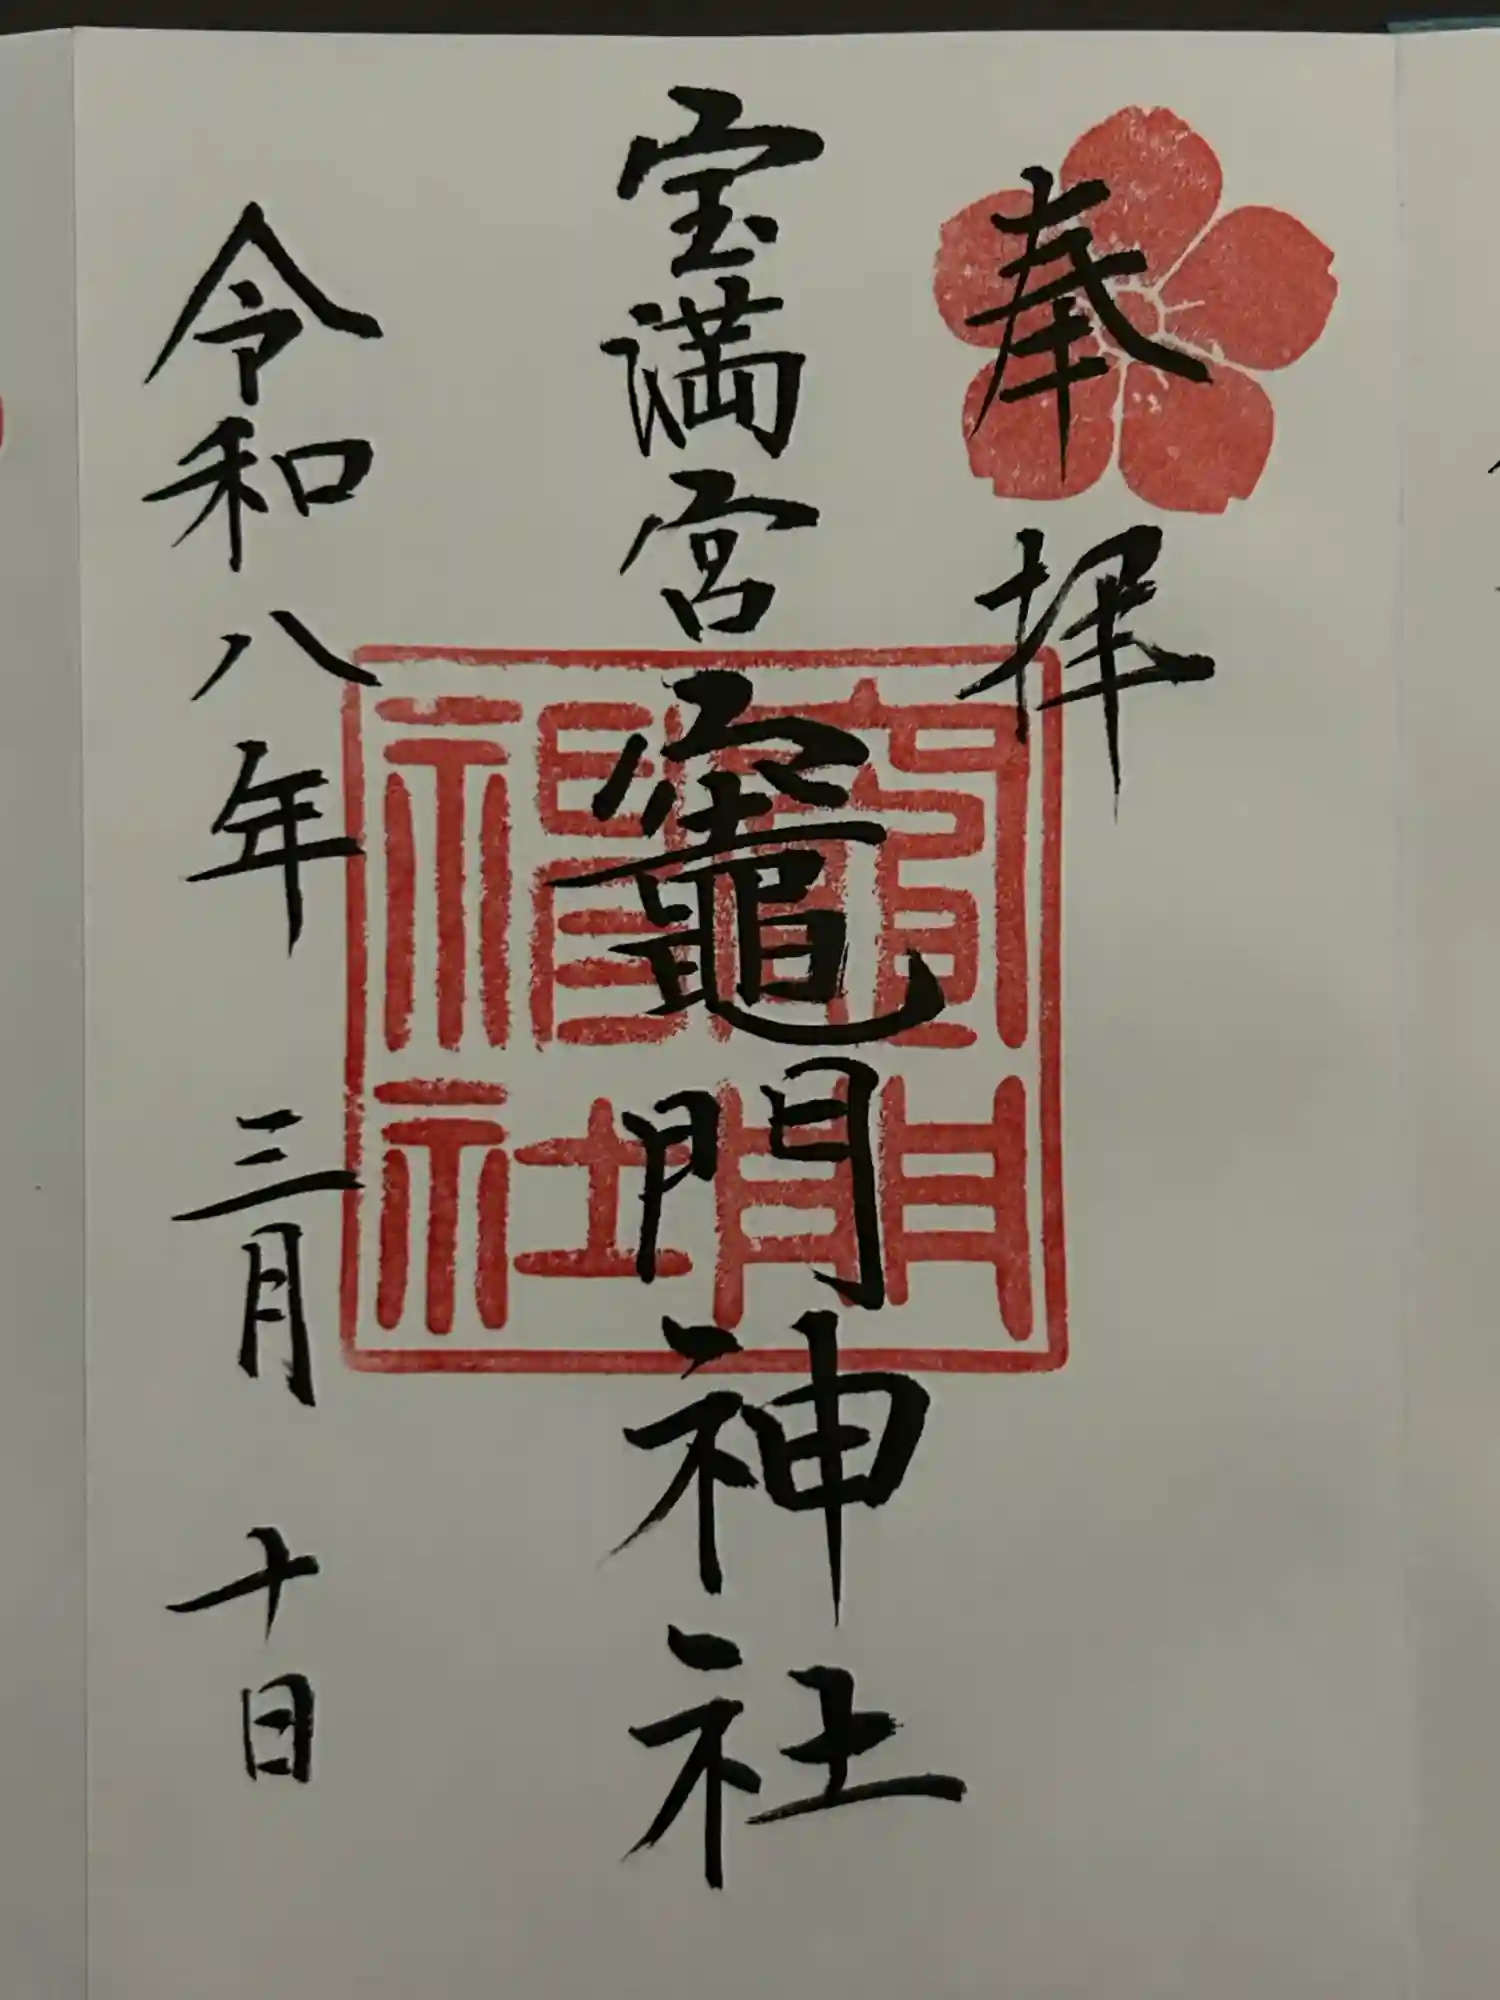 奉拝
宝満宮竈門神社
令和八年三月十日
竈門神社